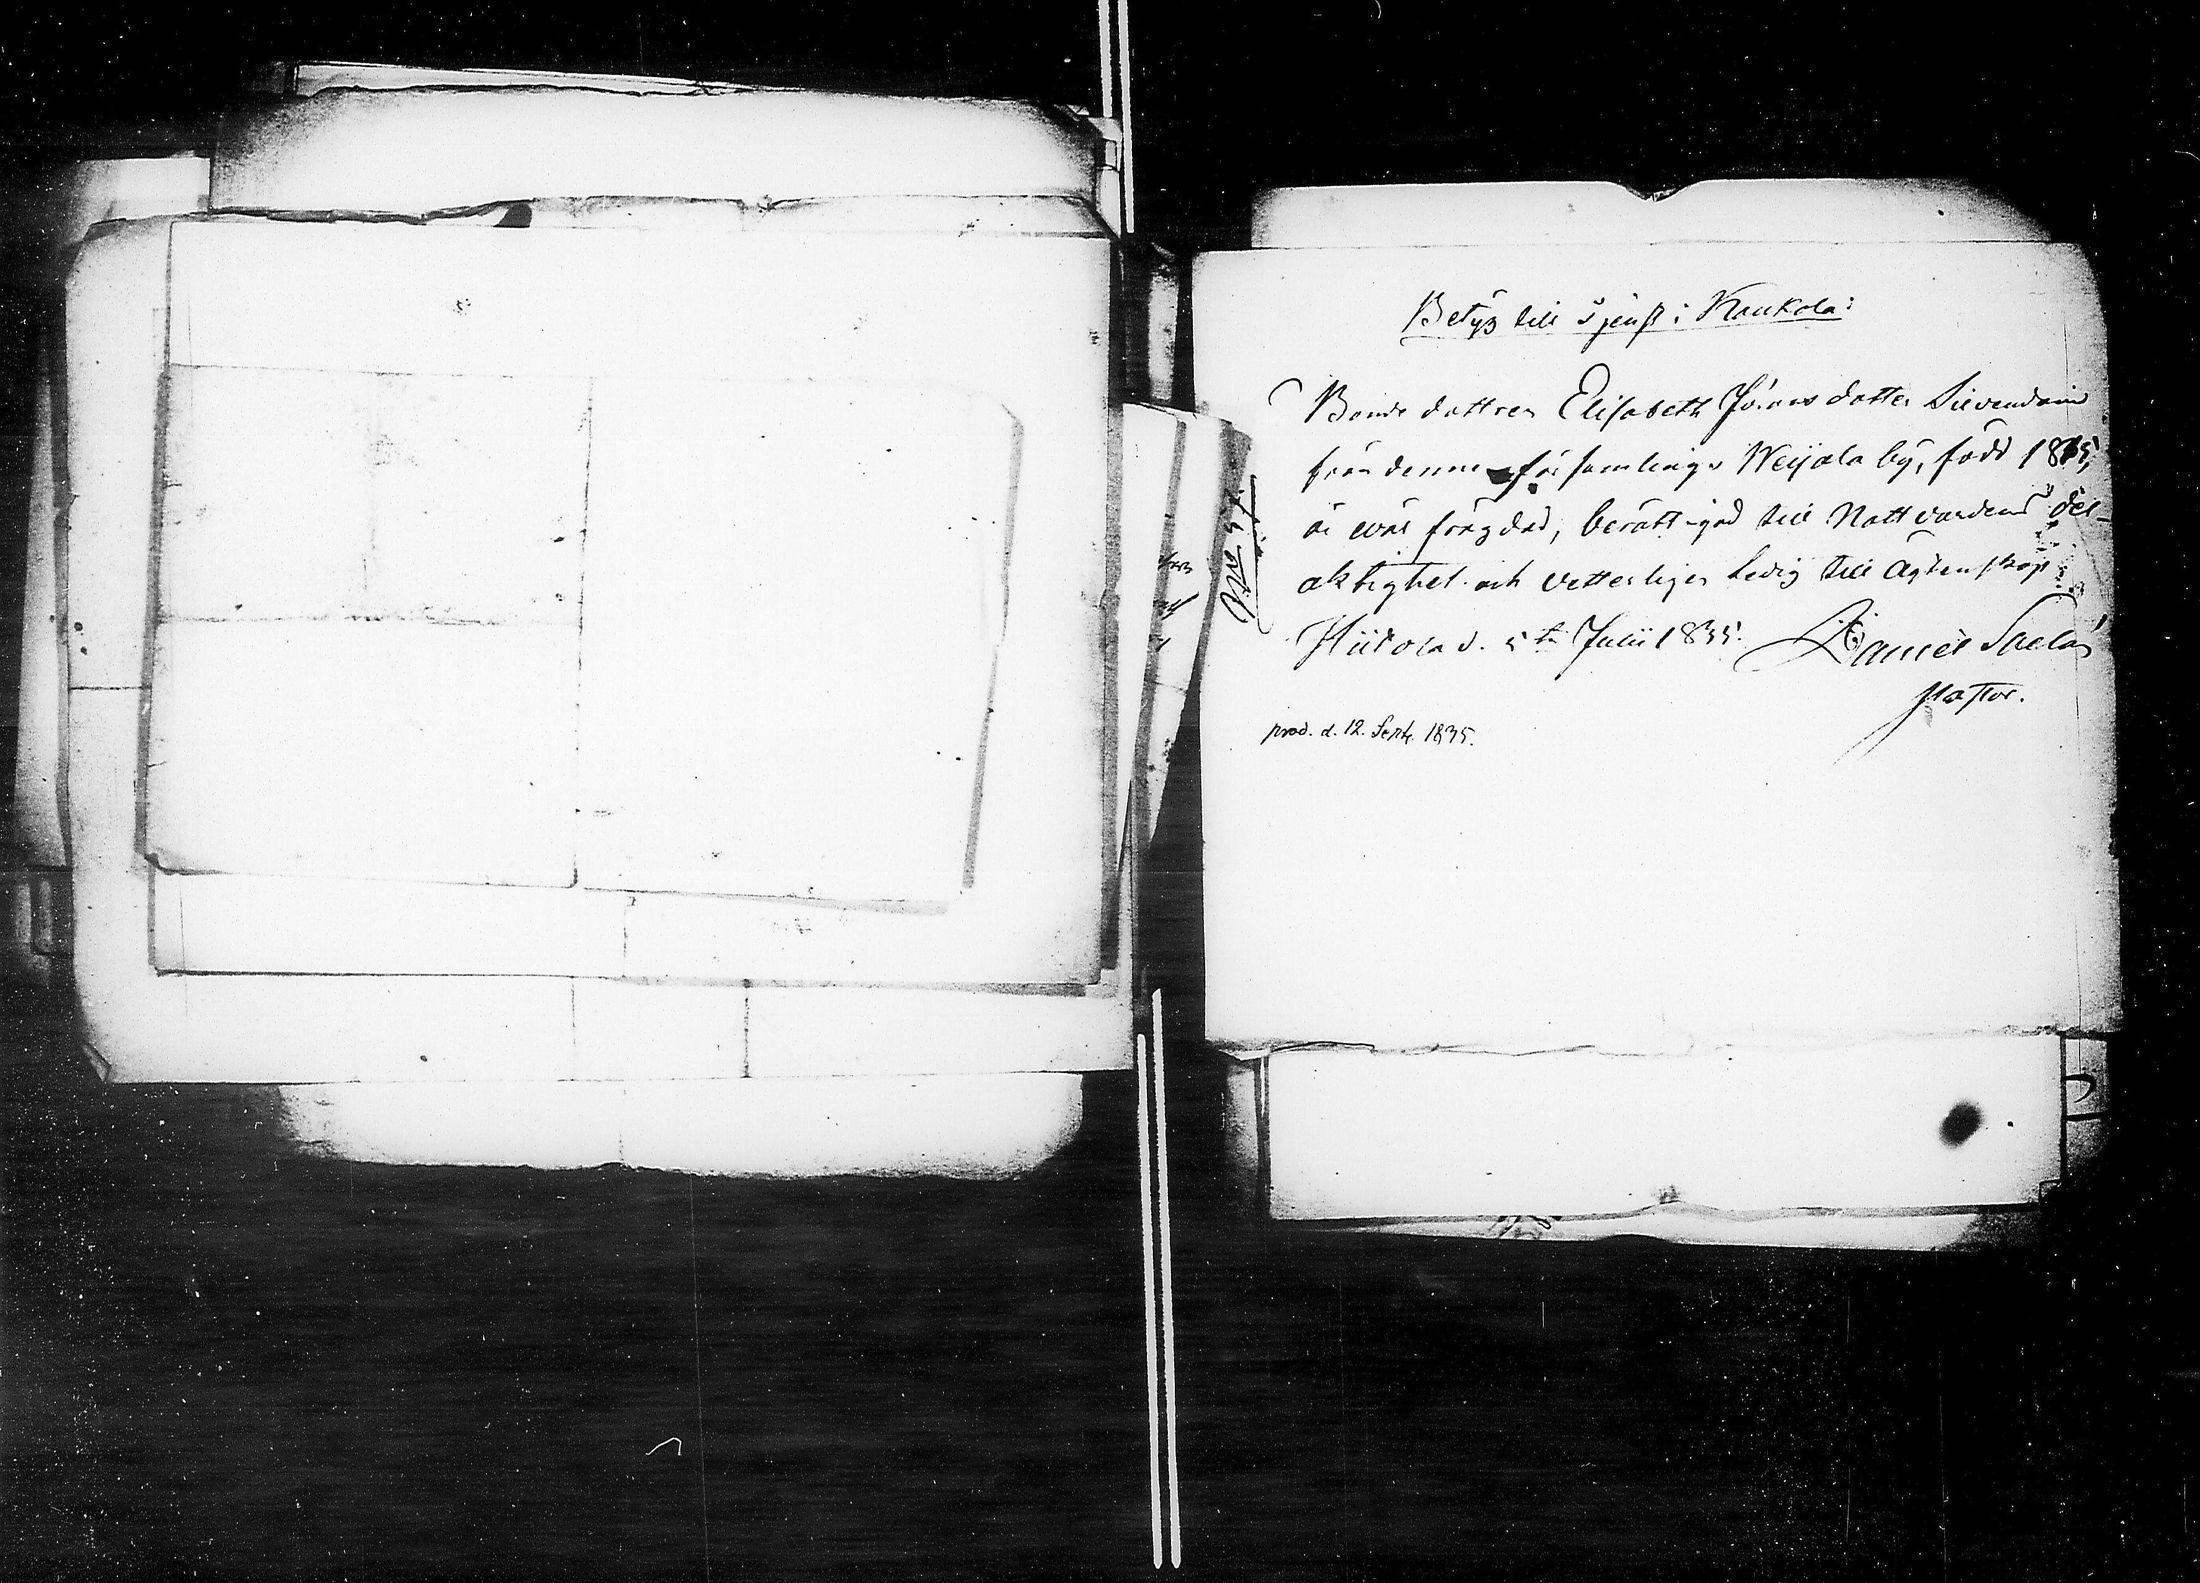 Betyg till tjenst i Kaukola:
Bonde dottren Elisabeth Jörans dotter Sievenäinen
från denne församlings Weijala by, född 1815,
är wäl frägdad, berättigad till Nattvardens del-
aktighet och vetterligen ledig till Agtenskap
Hiitola d. 5te Julii 1835. Daniel Saelan
Pastor.
prod. d. 12. Sept. 1835.